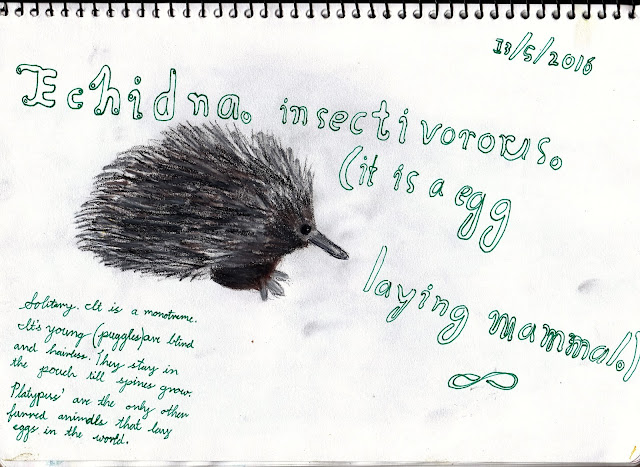 13/5/2016
Echidna. insectivororus.
(it is a egg
laying mammal.)
Solitary. It is a monotreme.
It's young (puggles) are blind
and hairless. They stay in
the pouch till spines grow.
Platypus' are the only other
furred animals that lay
eggs in the world.